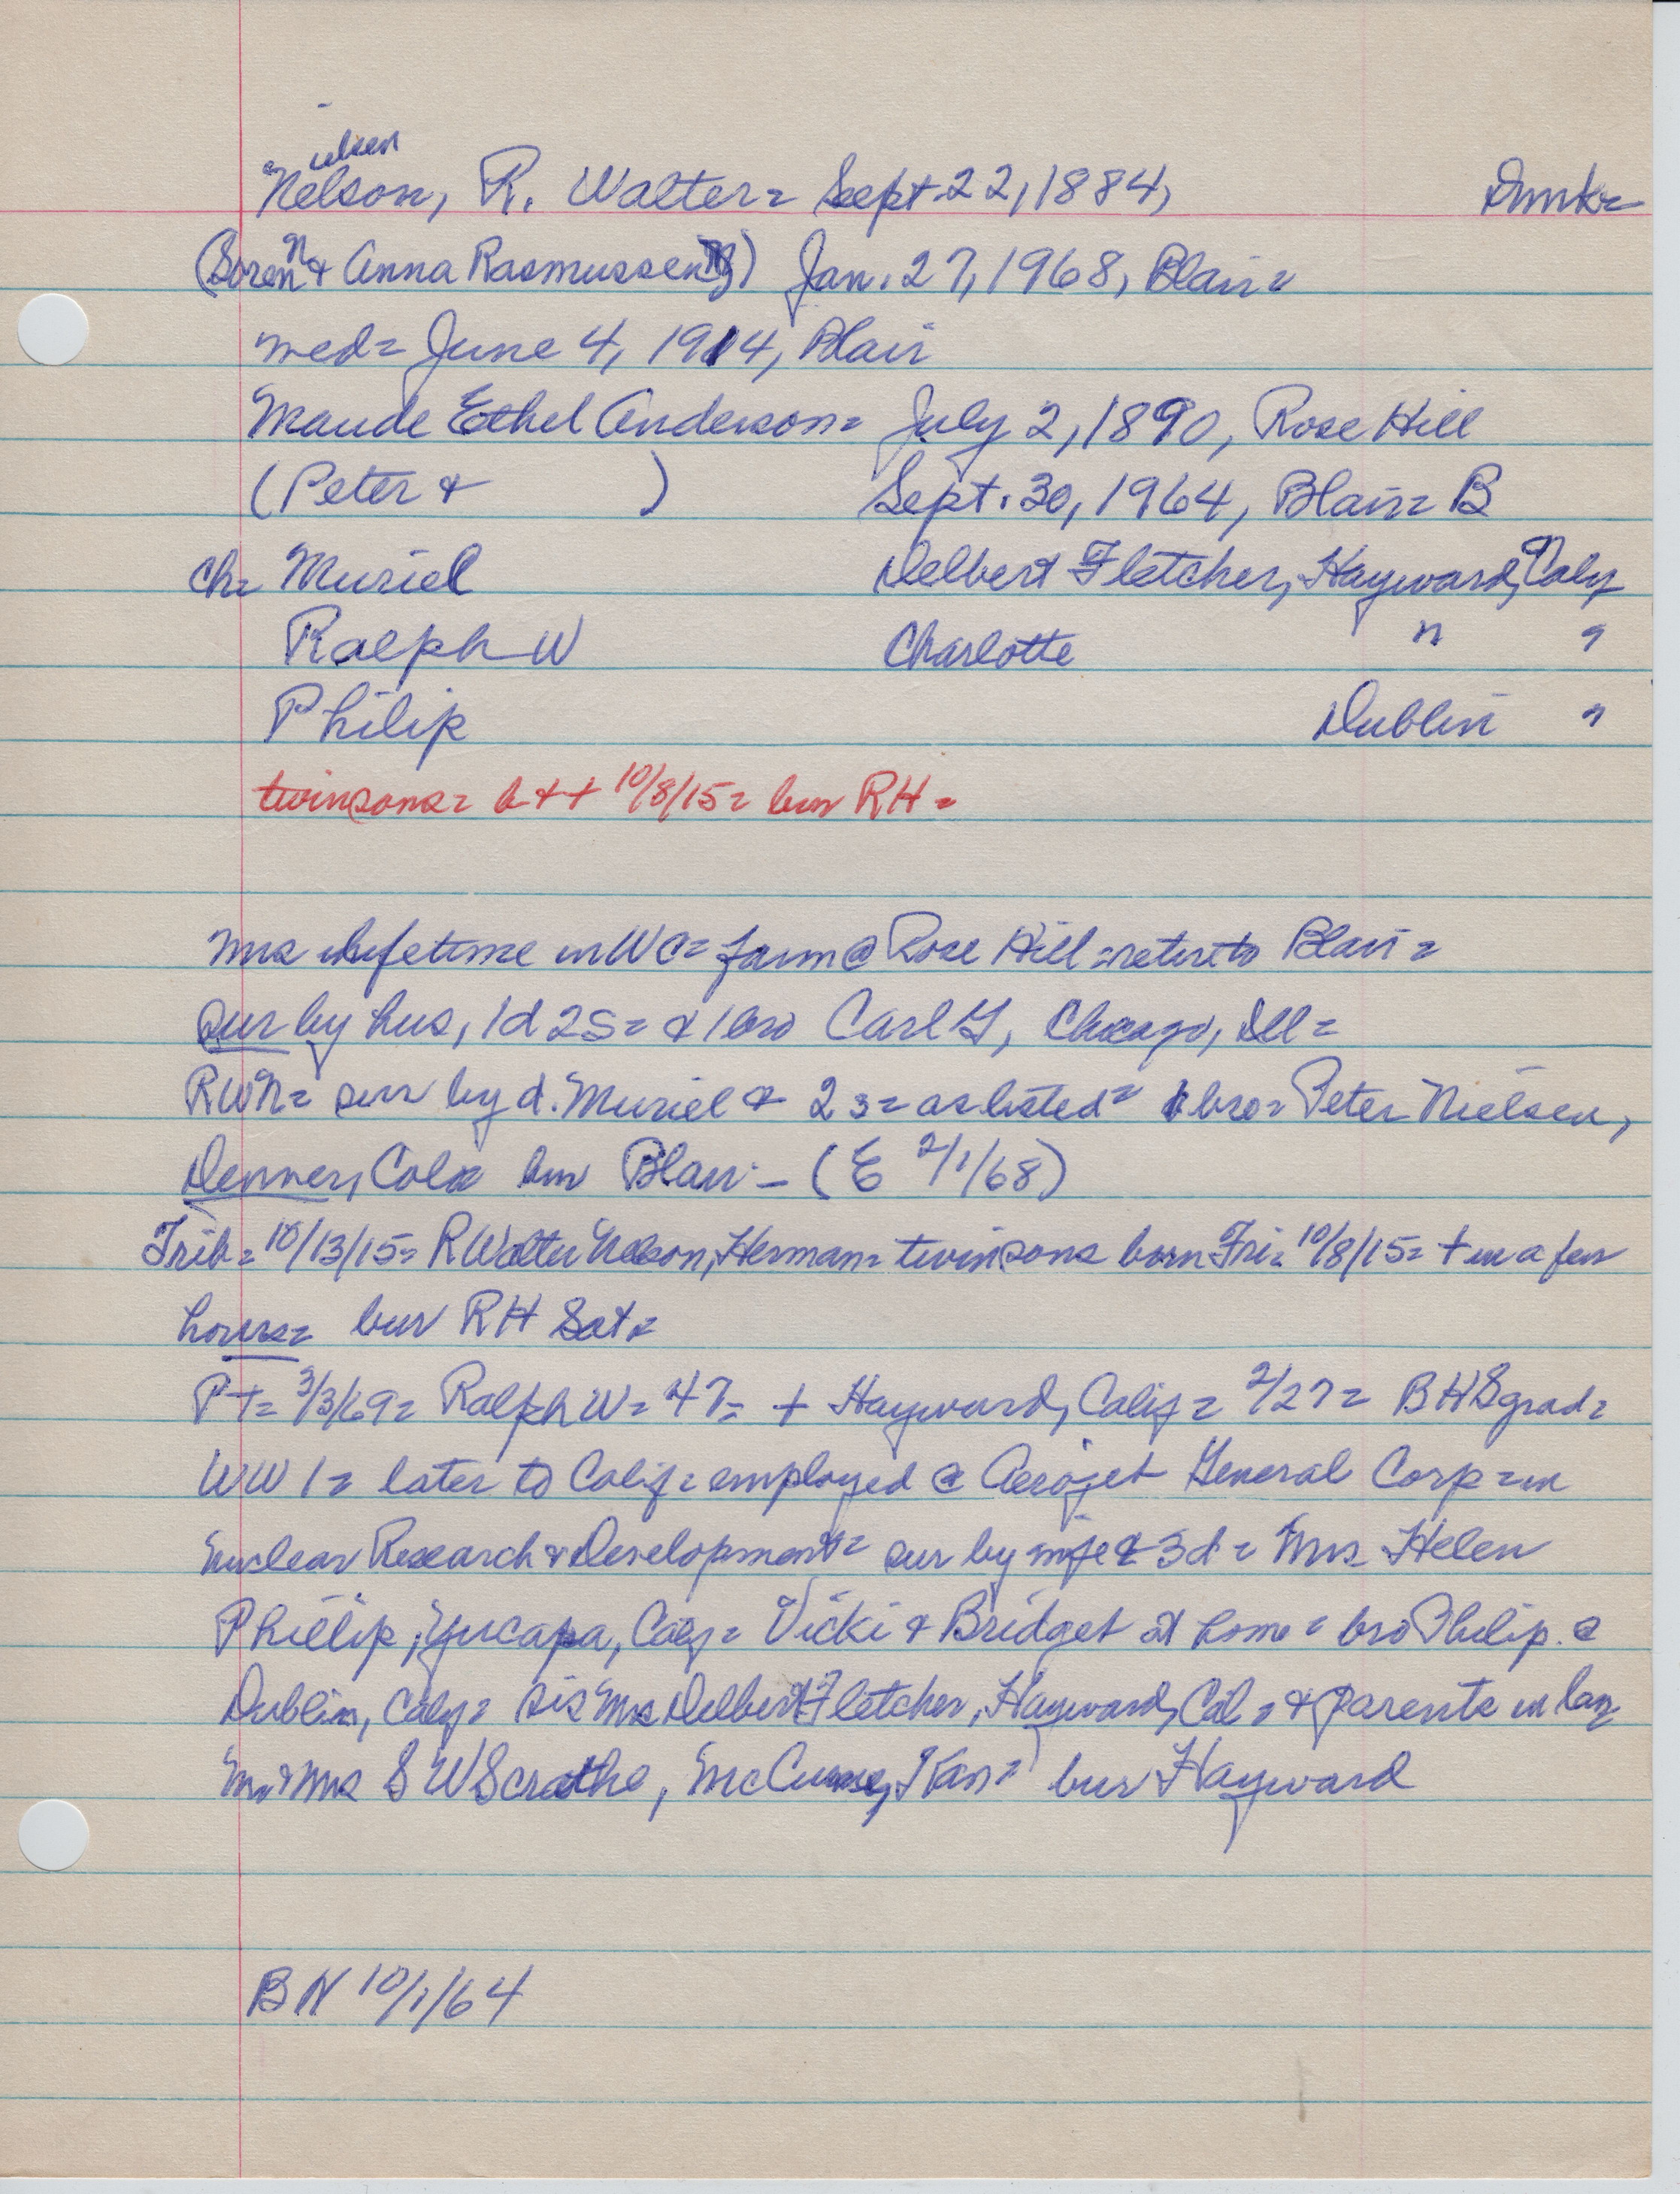 ielsen
Nelson, R. Walter= Sept. 22, 1884, Dmk=
(Soren N & Anna Rasmussen) Jan. 27, 1968, Blair=
med= June 4, 1914, Blair
Maude Ethel Anderson= July 2, 1890, Rose Hill
(Peter & ) Sept. 30, 1964, Blair= B
ch= Muriel Delbert Fletcher, Hayward, Calif
Ralph W Charlotte " "
Philip Dublin "
twin sons= b + + 10/8/15= bur RH=
Mrs lifetime in WC= farm @ Rose Hill= retire to Blair=
sur by hus, 1d 2s= & 1 bro Carl G, Chicago, Ill=
RWN= sur by d. Muriel & 2 s= as listed= bro= Peter Nielsen,
Denver, Colo bur Blair - (E 2/1/68)
Trib= 10/13/15= R Walter Nelson, Herman= twin sons born Fri= 10/8/15= + in a few
hours= bur RH Sat=
PT= 3/3/69= Ralph W= 47= + Hayward, Calif= 2/27= BHS grad=
WW 1= later to Calif= employed @ Aerojet General Corp= in
Nuclear Research & Development= sur by wife & 3d= Mrs Helen
Phillip, Yucapa, Calif= Vicki & Bridget at home= bro Philip @
Dublin, Calif= sis Mrs Delbert Fletcher, Hayward, Cal= & parents in law
Mr & Mrs S W Kan= bur Hayward
BN 10/1/64